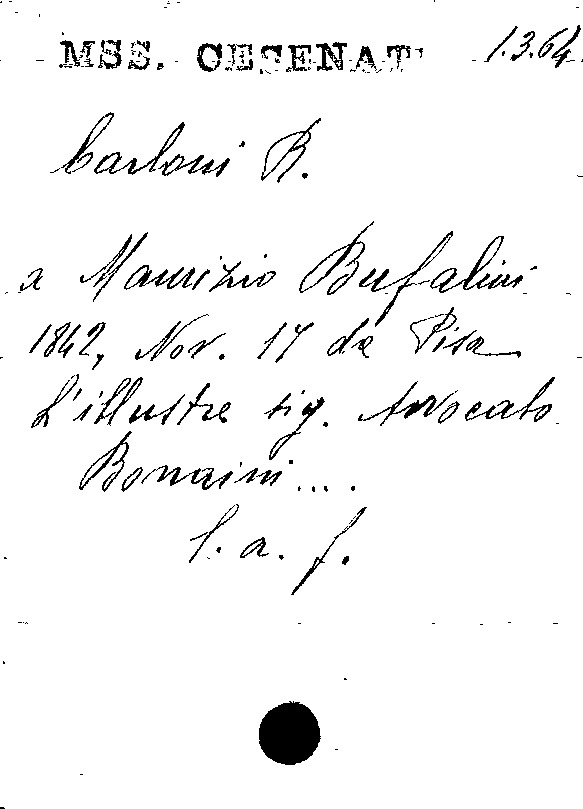 MSS. CESENATI
1.3.64
Carloni R.
a Maurizio Bufalini
1842, Nov. 17 da Pisa
L'illustre sig. Avvocato
Bonaini....
l. a. f.